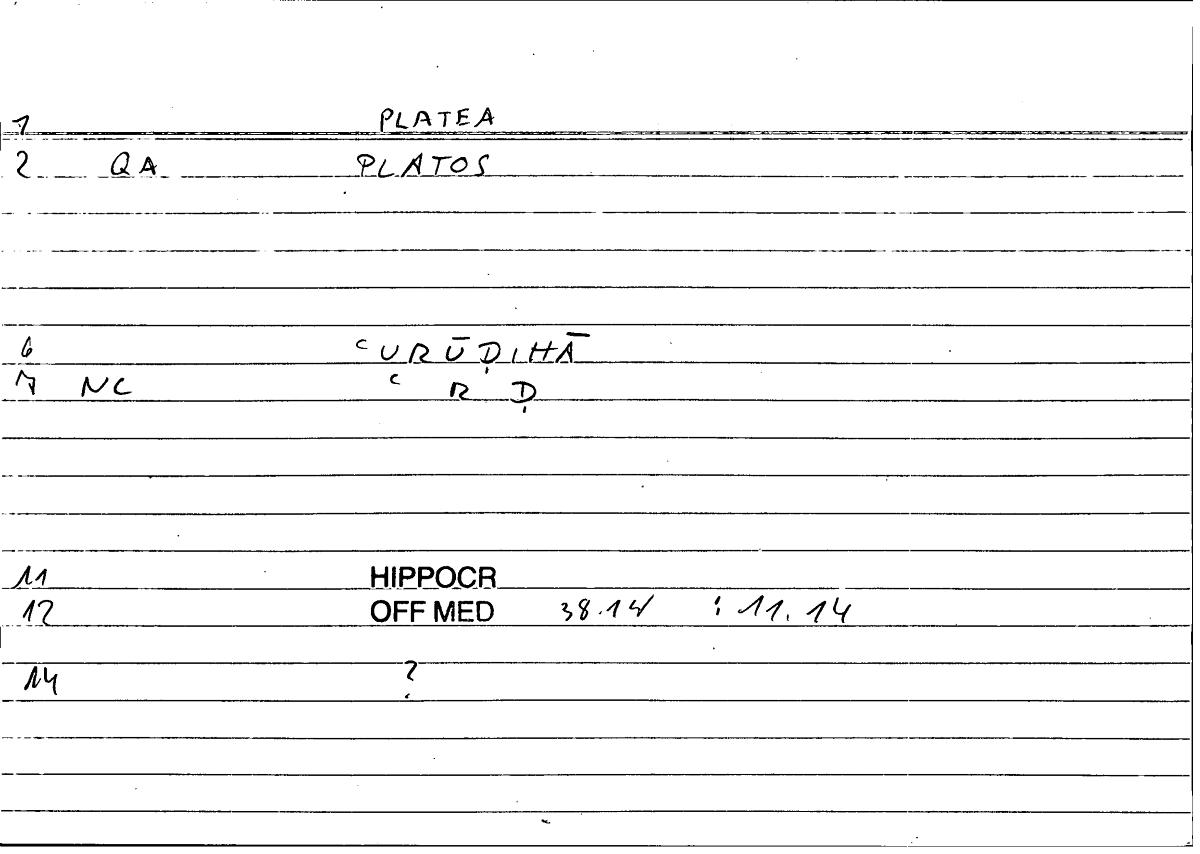 1 PLATEA
2 QA PLATOS
6 ʿURŪḌIHĀ
7 NC ʿ R Ḍ
11 HIPPOCR
12 OFF MED 38.14 : 11.14
14 ?